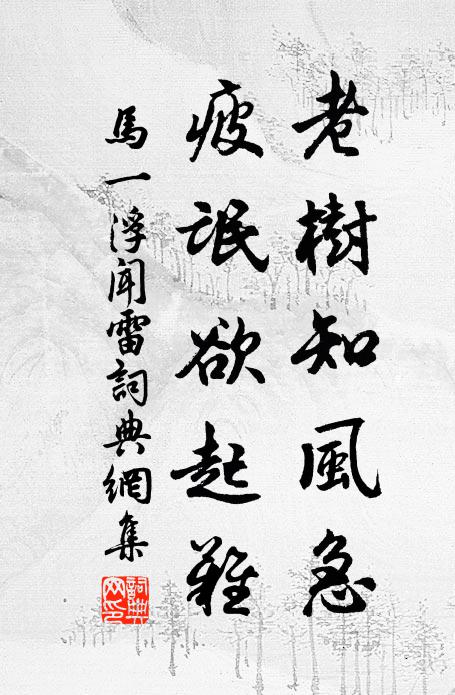 老樹知風急
疲氓欲起難
馬一浮聞雷詞典網集
詞典
網印